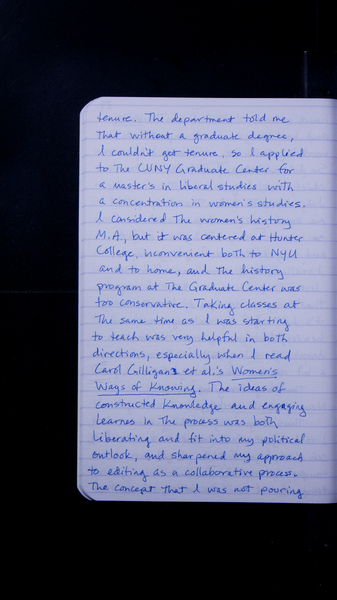 tenure. The department told me
that without a graduate degree,
I couldn't get tenure, so I applied
to the CUNY Graduate Center for
a master's in liberal studies with
a concentration in women's studies.
I considered the women's history
M.A., but it was centered at Hunter
College, inconvenient both to NYU
and to home, and the history
program at the Graduate Center was
too conservative. Taking classes at
the same time as I was starting
to teach was very helpful in both
directions, especially when I read
Carol Gilligan et al.'s Women's
Ways of Knowing. The ideas of
constructed knowledge and engaging
learnes in the process was both
liberating and fit into my political
outlook, and sharpened my approach
to editing as a collaborative process.
The concept that I was not pouring